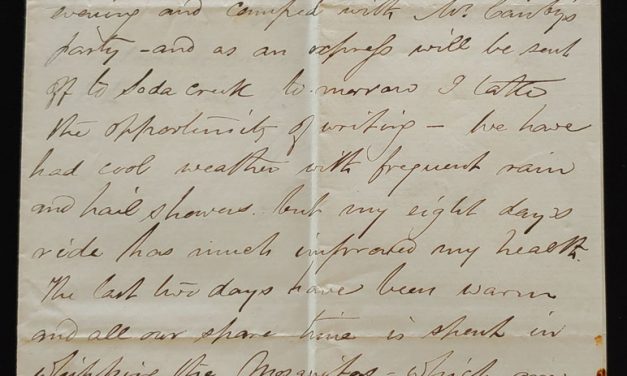 evening and camped with Mr. Canby's
party - and as an express will be sent
off to Soda Creek to morrow I take
the opportunity of writing - We have
had cool weather with frequent rain
and hail showers. but my eight days
ride has much improved my health.
The last two days have been warm
and all our spare time is spent in
the Mosquitos - which